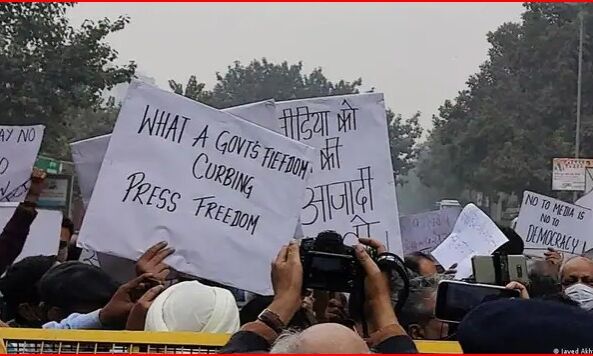 AY NO
WHAT A GOVT'S FIEFDOM
CURBING
PRESS FREEDOM
मीडिया को
की
आजादी
NO TO MEDIA IS
NO TO
DEMOCRACY !
© Javed Akh